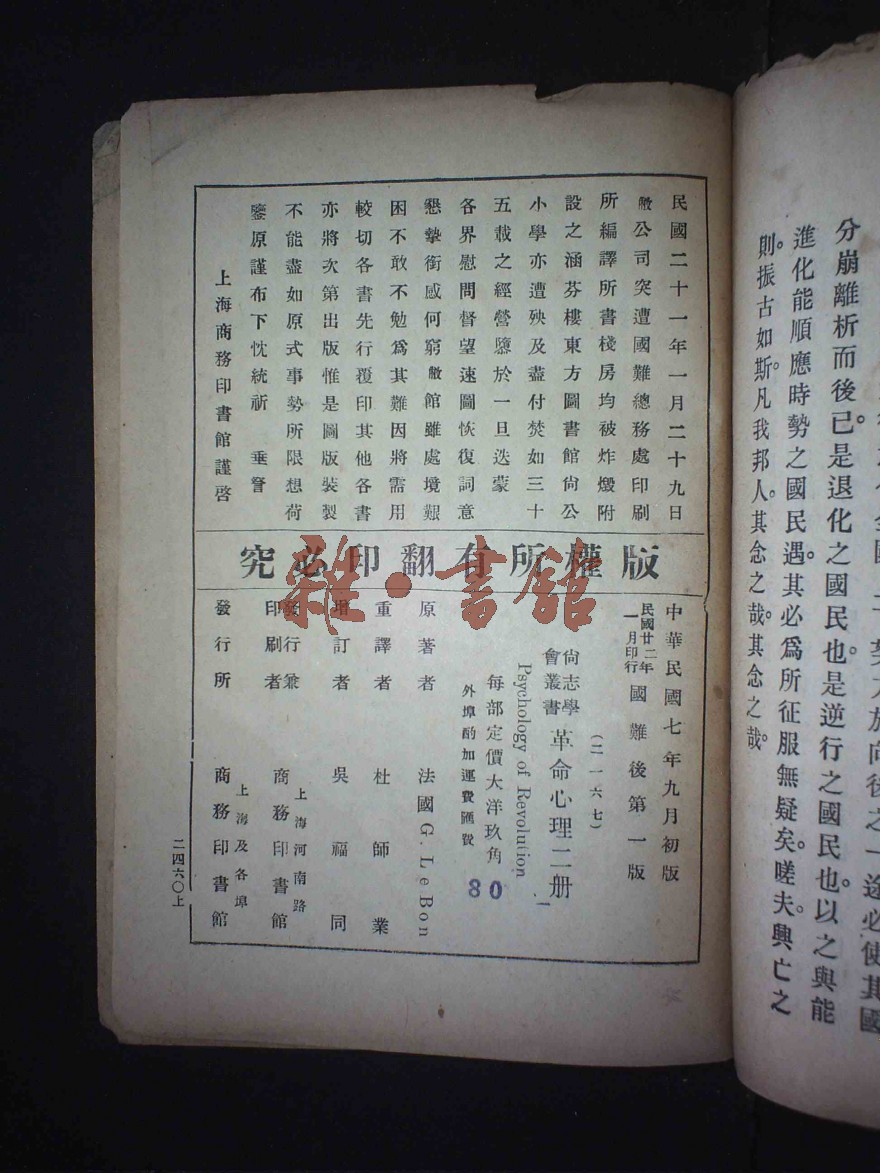 分崩離析而後已。是退化之國民也。是逆行之國民也。以之與能
進化能順應時勢之國民遇。其必爲所征服無疑矣。嗟夫。興亡之
則。振古如斯。凡我邦人。其念之哉。其念之哉。
民國二十一年一月二十九日
敝公司突遭國難總務處印刷
所編譯所書棧房均被炸燬附
設之涵芬樓東方圖書館尙公
小學亦遭殃及盡付焚如三十
五載之經營隳於一旦迭蒙
各界慰問督望速圖恢復詞意
懇摯銜感何窮敝館雖處境艱
困不敢不勉爲其難因將需用
較切各書先行覆印其他各書
亦將次第出版惟是圖版裝製
不能盡如原式事勢所限想荷
鑒原謹布下忱統祈 垂詧
上海商務印書館謹啓
版權所有翻印必究
中華民國七年九月初版
民國廿二年
一月印行 國難後第一版
(二一六七)
尙志學
會叢書 革命心理二册
Psychology of Revolution
每部定價大洋玖角
外埠酌加運費匯費
80
原著者 法國 G. Le Bon
重譯者 杜師業
增訂者 吳福同
發行兼
印刷者 上海河南路
商務印書館
發行所 上海及各埠
商務印書館
二四六〇上
雜·書館